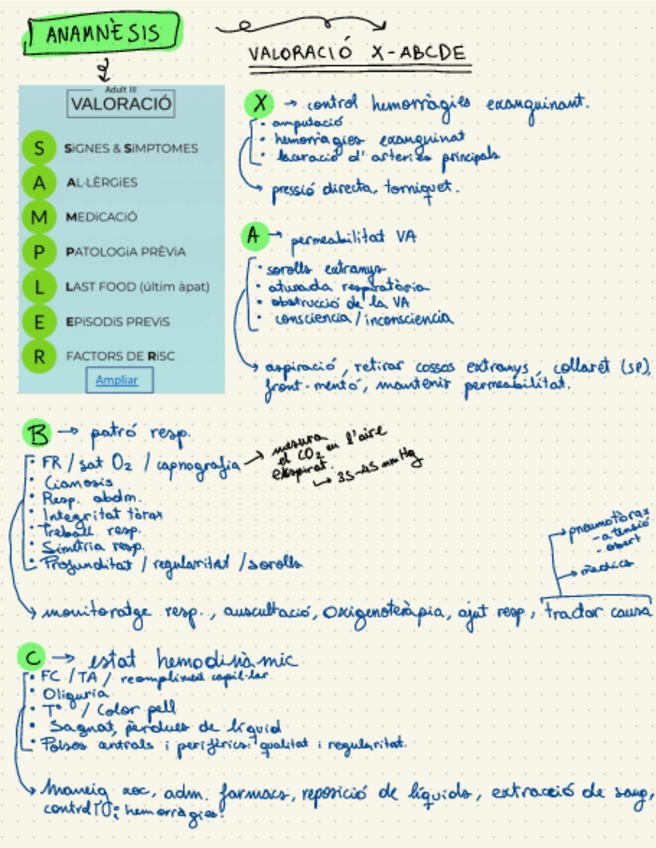 ANAMNÈSIS
VALORACIÓ X-ABCDE
Adult III
VALORACIÓ
S SiGNES & SíMPTOMES
A AL·LÈRGiES
M MEDiCACiÓ
P PATOLOGiA PRÈViA
L LAST FOOD (últim àpat)
E EPiSODiS PREViS
R FACTORS DE RiSC
Ampliar
X → control hemorràgies exanguinant.
• amputació
• hemorragies exanguinat
• laceració d'arteries principals
pressió directa, torniquet.
A → permeabilitat VA
• sorolls extranys
• aturada respiratòria
• obstrucció de la VA
• consciencia / inconsciencia
aspiració, retirar cossos extranys, collaret (SP),
front-mentó, mantenir permeabilitat.
B → patró resp.
• FR / sat O2 / capnografia → mesura
el CO2 en l'aire
expirat.
↳ 35-45 mmHg
• Cianosis
• Resp. abdm.
• Integritat tòrax
• Treball resp.
• Simetria resp.
• Profunditat / regularitat / sorolls
pneumotòrax
- a tensió
- obert
monitoratge resp., auscultació, Oxigenoteràpia, ajut resp, tractar causa
C → estat hemodinàmic
• FC / TA / reompliment capil·lar
• Oliguria
• Tª / Color pell
• Sagnat, pèrdues de líquid
• Polsos centrals i perifèrics: qualitat i regularitat.
Maneig xoc, adm. farmacs, reposició de líquids, extracció de sang,
control hemorràgies.